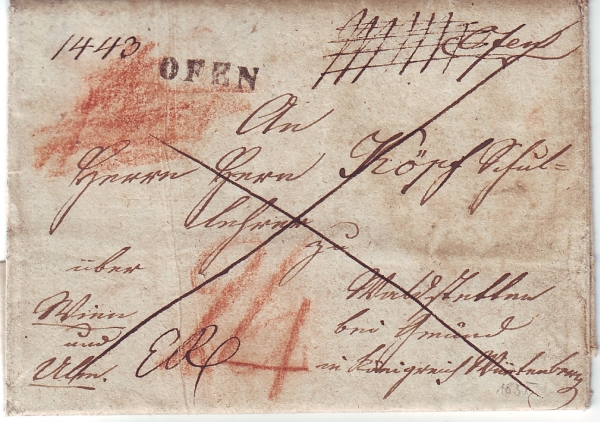 1443 OFEN Ofen
An
Herrn Herrn Köpf Schul=
lehrer
zu
über Waldstetten
Wien bei Gmünd
und
Ulm. in Königreich Würtenberg